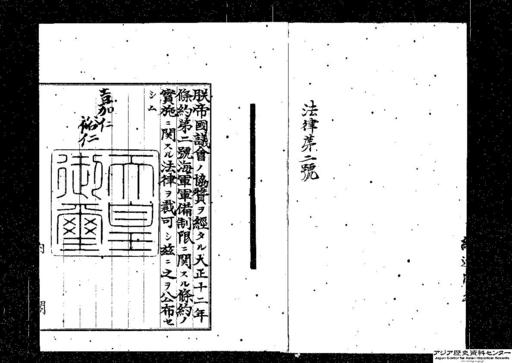 法律第二號
朕帝國議會ノ協贊ヲ經タル大正十二年
條約第二號海軍軍備制限ニ關スル條約ノ
實施ニ關スル法律ヲ裁可シ茲ニ之ヲ公布セ
シム
嘉仁
裕仁
天皇
御璽
内閣
アジア歴史資料センター
Japan Center for Asian Historical Records